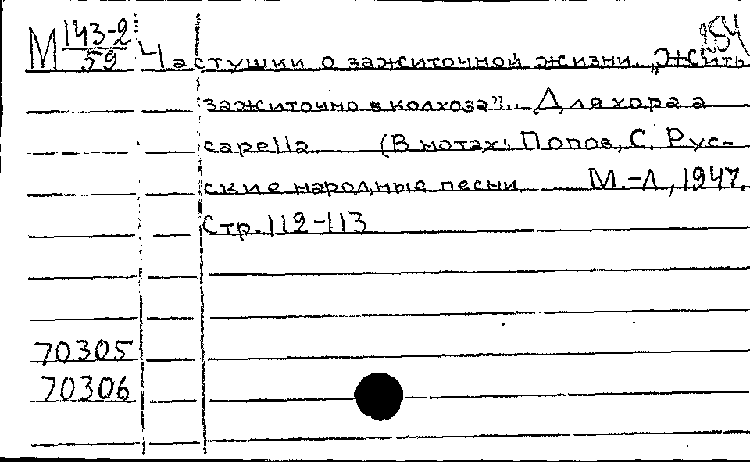 М 143-2/59 Частушки о зажиточной жизни. „Жить
254
зажиточно в колхоза". Для хора a
capella (В нотах: Попов, С. Рус-
ские народные песни М.-Л, 1947.
Стр. 112-113
70305
70306